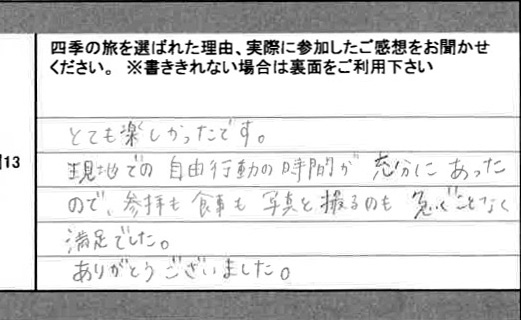 四季の旅を選ばれた理由、実際に参加したご感想をお聞かせ
ください。 ※書ききれない場合は裏面をご利用下さい
とても楽しかったです。
13
現地での自由行動の時間が充分にあった
ので、参拝も食事も写真を撮るのも急ぐことなく
満足でした。
ありがとうございました。